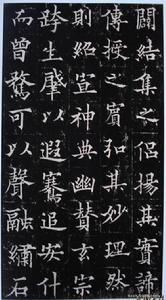 結集之侶揚其實諦
傳授之賓弘其妙理然
則紹宣神典幽贊玄宗
跨生肇以遐騫追安什
而曾騖可以聲融繡石